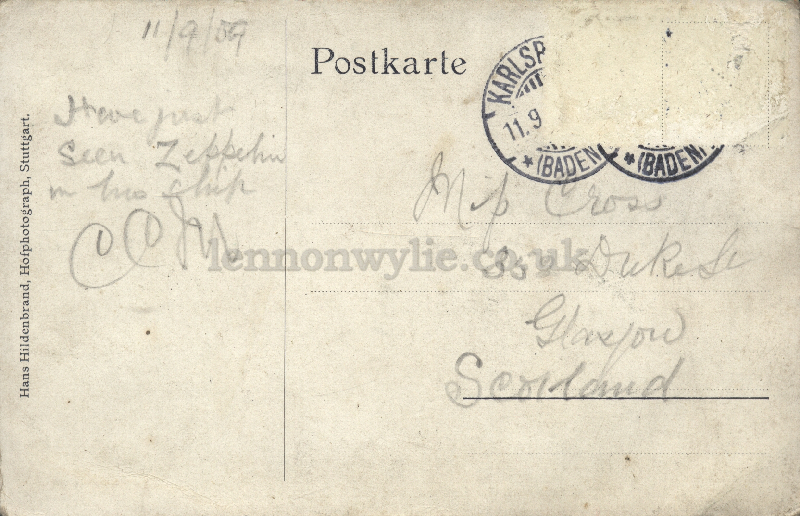 11/9/09
Postkarte
KARLSR
11.9
*(BADEN
*(BADEN)
Have just
Seen Zeppelin
in his ship
CCM
Cross
Duke St
Glasgow
Scotland
lennonwylie.co.uk
Hans Hildenbrand, Hofphotograph, Stuttgart.